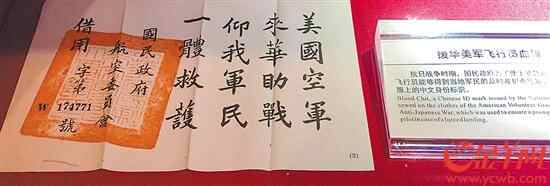 美國空軍
來華助戰
仰我軍民
一體救護
國民政府
航空委員會
借用 字第
W 174771 號
援华美军飞行员血
抗日战争时期，国民政府为了便于
飞行员能够得到当地军民的及时救护
服上的中文身份标识。
Blood Chit, a Chinese ID mark issued by the
sewed on the clothes of the American Volunteer
Anti-Japanese War, which was used to ensure a
pilot in case of a forced landing.
金羊网
www.ycwb.com